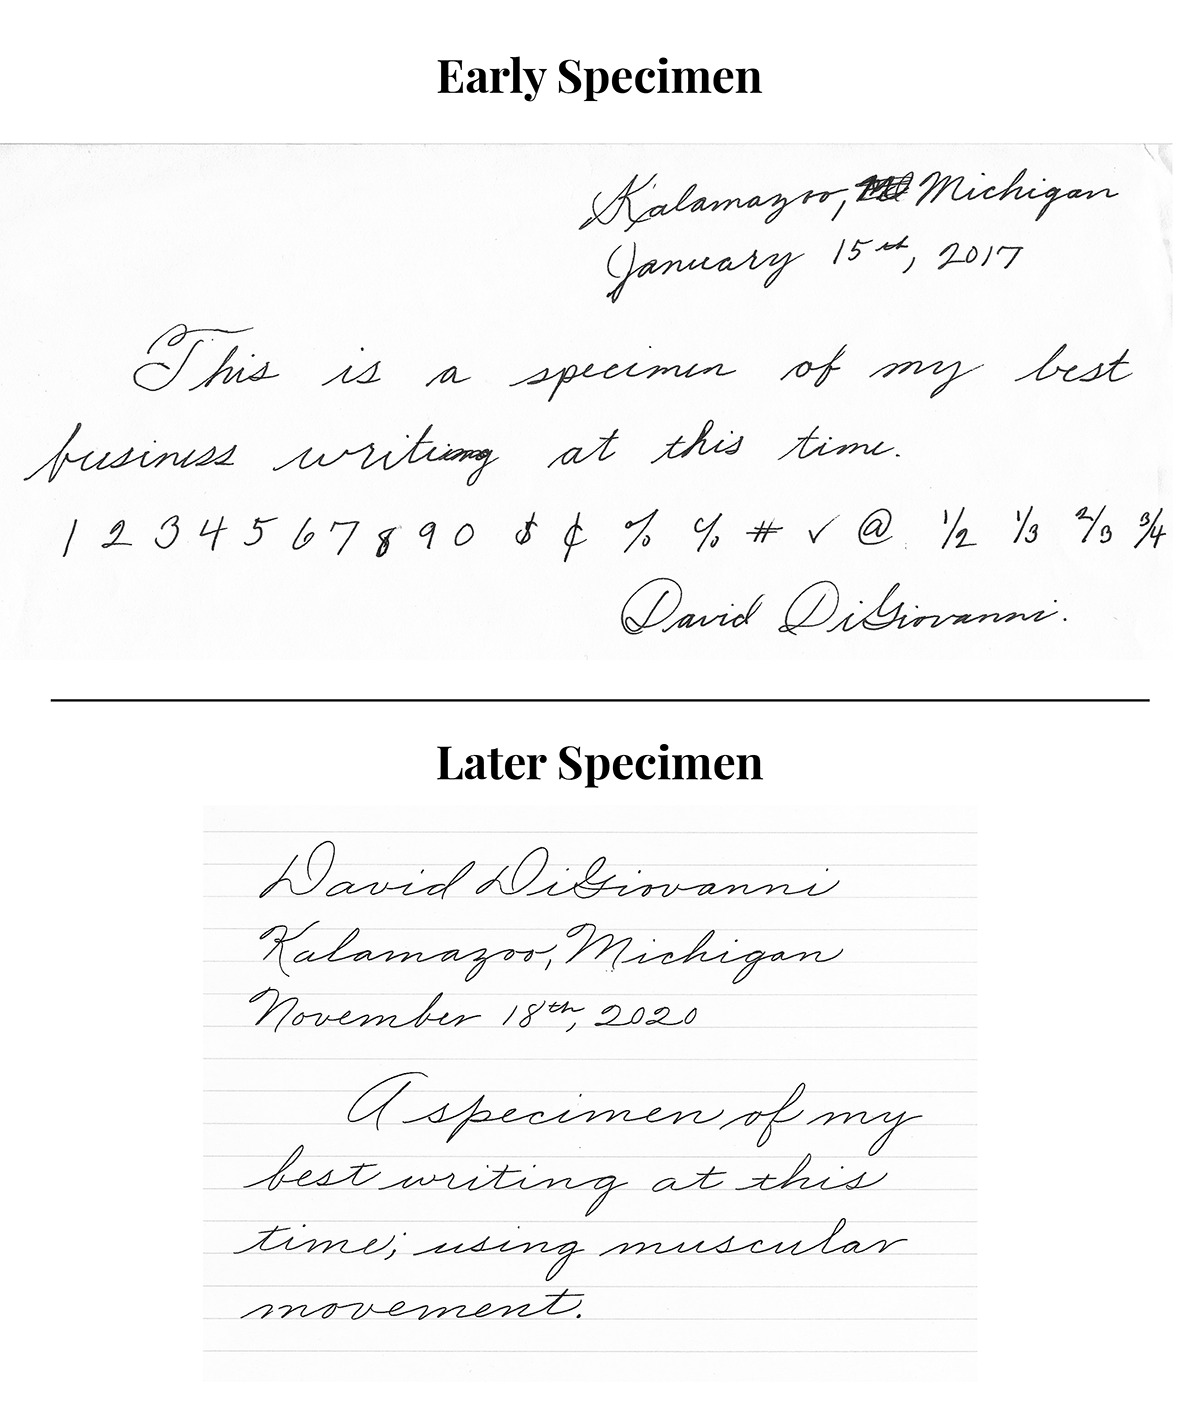 Early Specimen
Kalamazoo, Michigan
January 15th, 2017
This is a specimen of my best
business writing at this time.
1 2 3 4 5 6 7 8 9 0 $ ¢ % % # ✓ @ 1/2 1/3 2/3 3/4
David DiGiovanni.
Later Specimen
David DiGiovanni
Kalamazoo, Michigan
November 18th, 2020
A specimen of my
best writing at this
time; using muscular
movement.